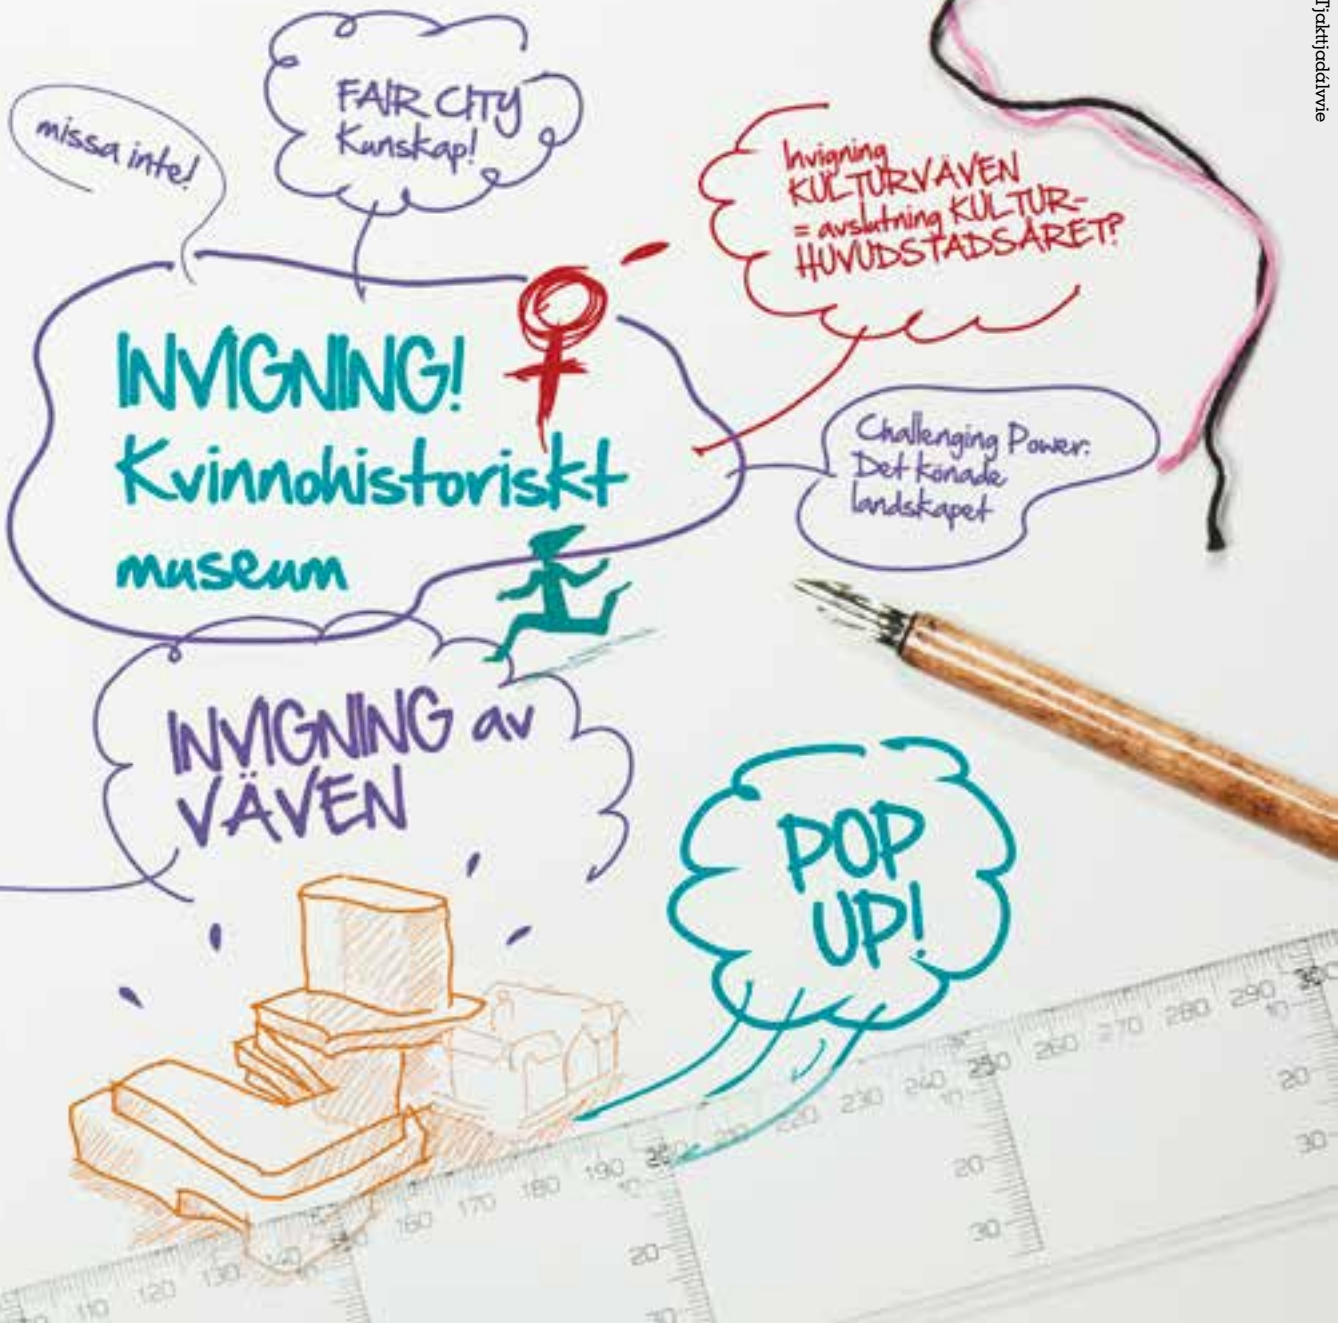 Tjakttjadálvvie
FAIR CITY
Kunskap!
missa inte!
Invigning
KULTURVÄVEN
= avslutning KULTUR-
HUVUDSTADSÅRET?
INVIGNING!
Kvinnohistoriskt
museum
Challenging Power:
Det könade
landskapet
INVIGNING av
VÄVEN
POP
UP!
110 120 130 140 160 170 180 190 210 220 230 240 250 260 270 280 290 300
10
20
30
10
20
30
10
20
30